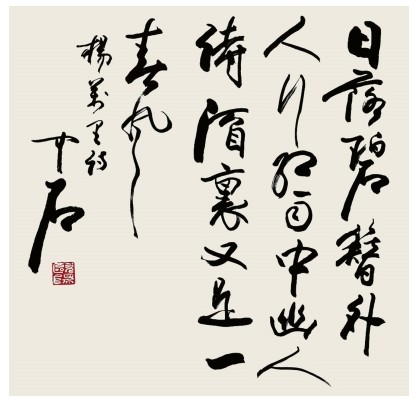 日落碧簪外
人行紅雨中幽人
詩酒裏又是一
春風
楊萬里詩
中石